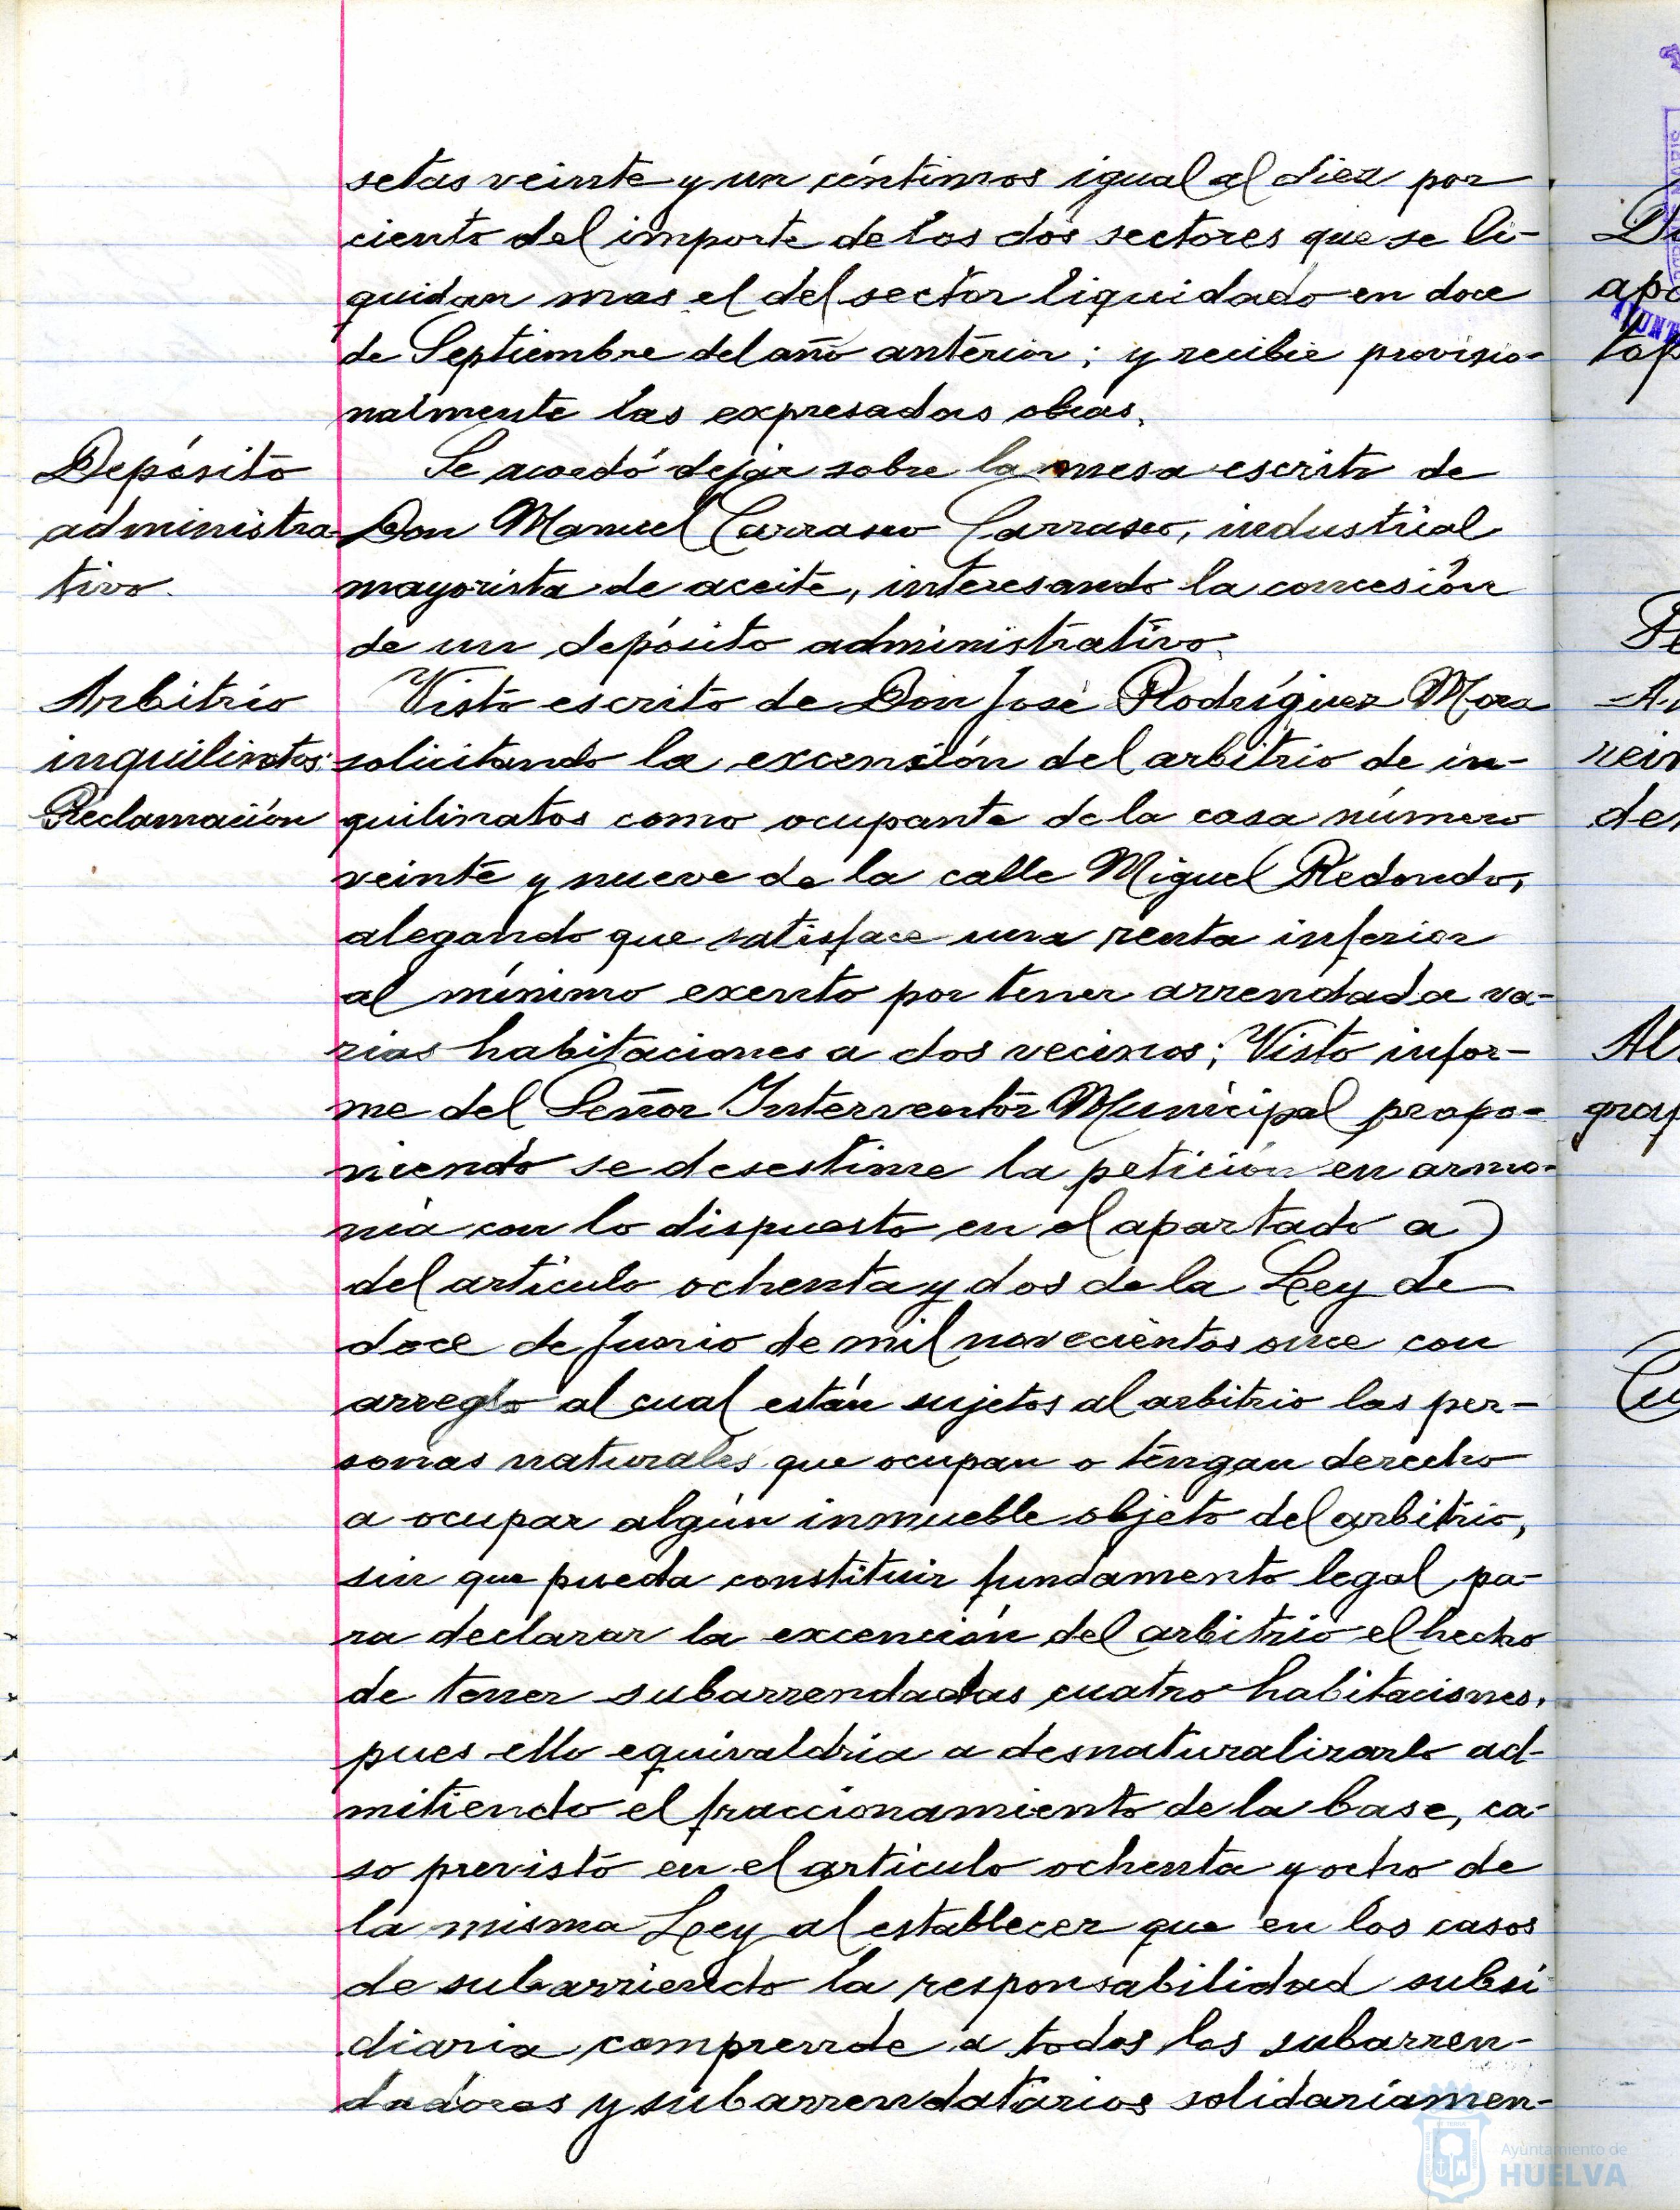 setas veinte y un céntimos igual al diez por
ciento del importe de los dos sectores que se li-
quidan mas el del sector liquidado en doce
de Septiembre del año anterior; y recibir provisio-
nalmente las expresadas obras.
Depósito
administra-
tivo.
Se acordó dejar sobre la mesa escrito de
Don Manuel Carrasco Carrasco, industrial
mayorista de aceite, interesando la concesión
de un depósito administrativo.
Arbitrio
inquilinatos:
Reclamación
Visto escrito de Don José Rodríguez Mora
solicitando la excensión del arbitrio de in-
quilinatos como ocupante de la casa número
veinte y nueve de la calle Miguel Redondo,
alegando que satisface una renta inferior
al mínimo exento por tener arrendada va-
rias habitaciones a dos vecinos; Visto infor-
me del Señor Interventor Municipal propo-
niendo se desestime la petición en armo-
nía con lo dispuesto en el apartado a)
del artículo ochenta y dos de la Ley de
doce de Junio de mil novecientos once con
arreglo al cual están sujetos al arbitrio las per-
sonas naturales que ocupan o tengan derecho
a ocupar algún inmueble objeto del arbitrio,
sin que pueda constituir fundamento legal pa-
ra declarar la excención del arbitrio el hecho
de tener subarrendadas cuatro habitaciones,
pues ello equivaldría a desnaturalizarlo ad-
mitiendo el fraccionamiento de la base, ca-
so previsto en el artículo ochenta y ocho de
la misma Ley al establecer que en los casos
de subarriendo la responsabilidad subsi
diaria comprende a todos los subarren-
dadores y subarrendatarios solidariamen-
Ayuntamiento de
HUELVA